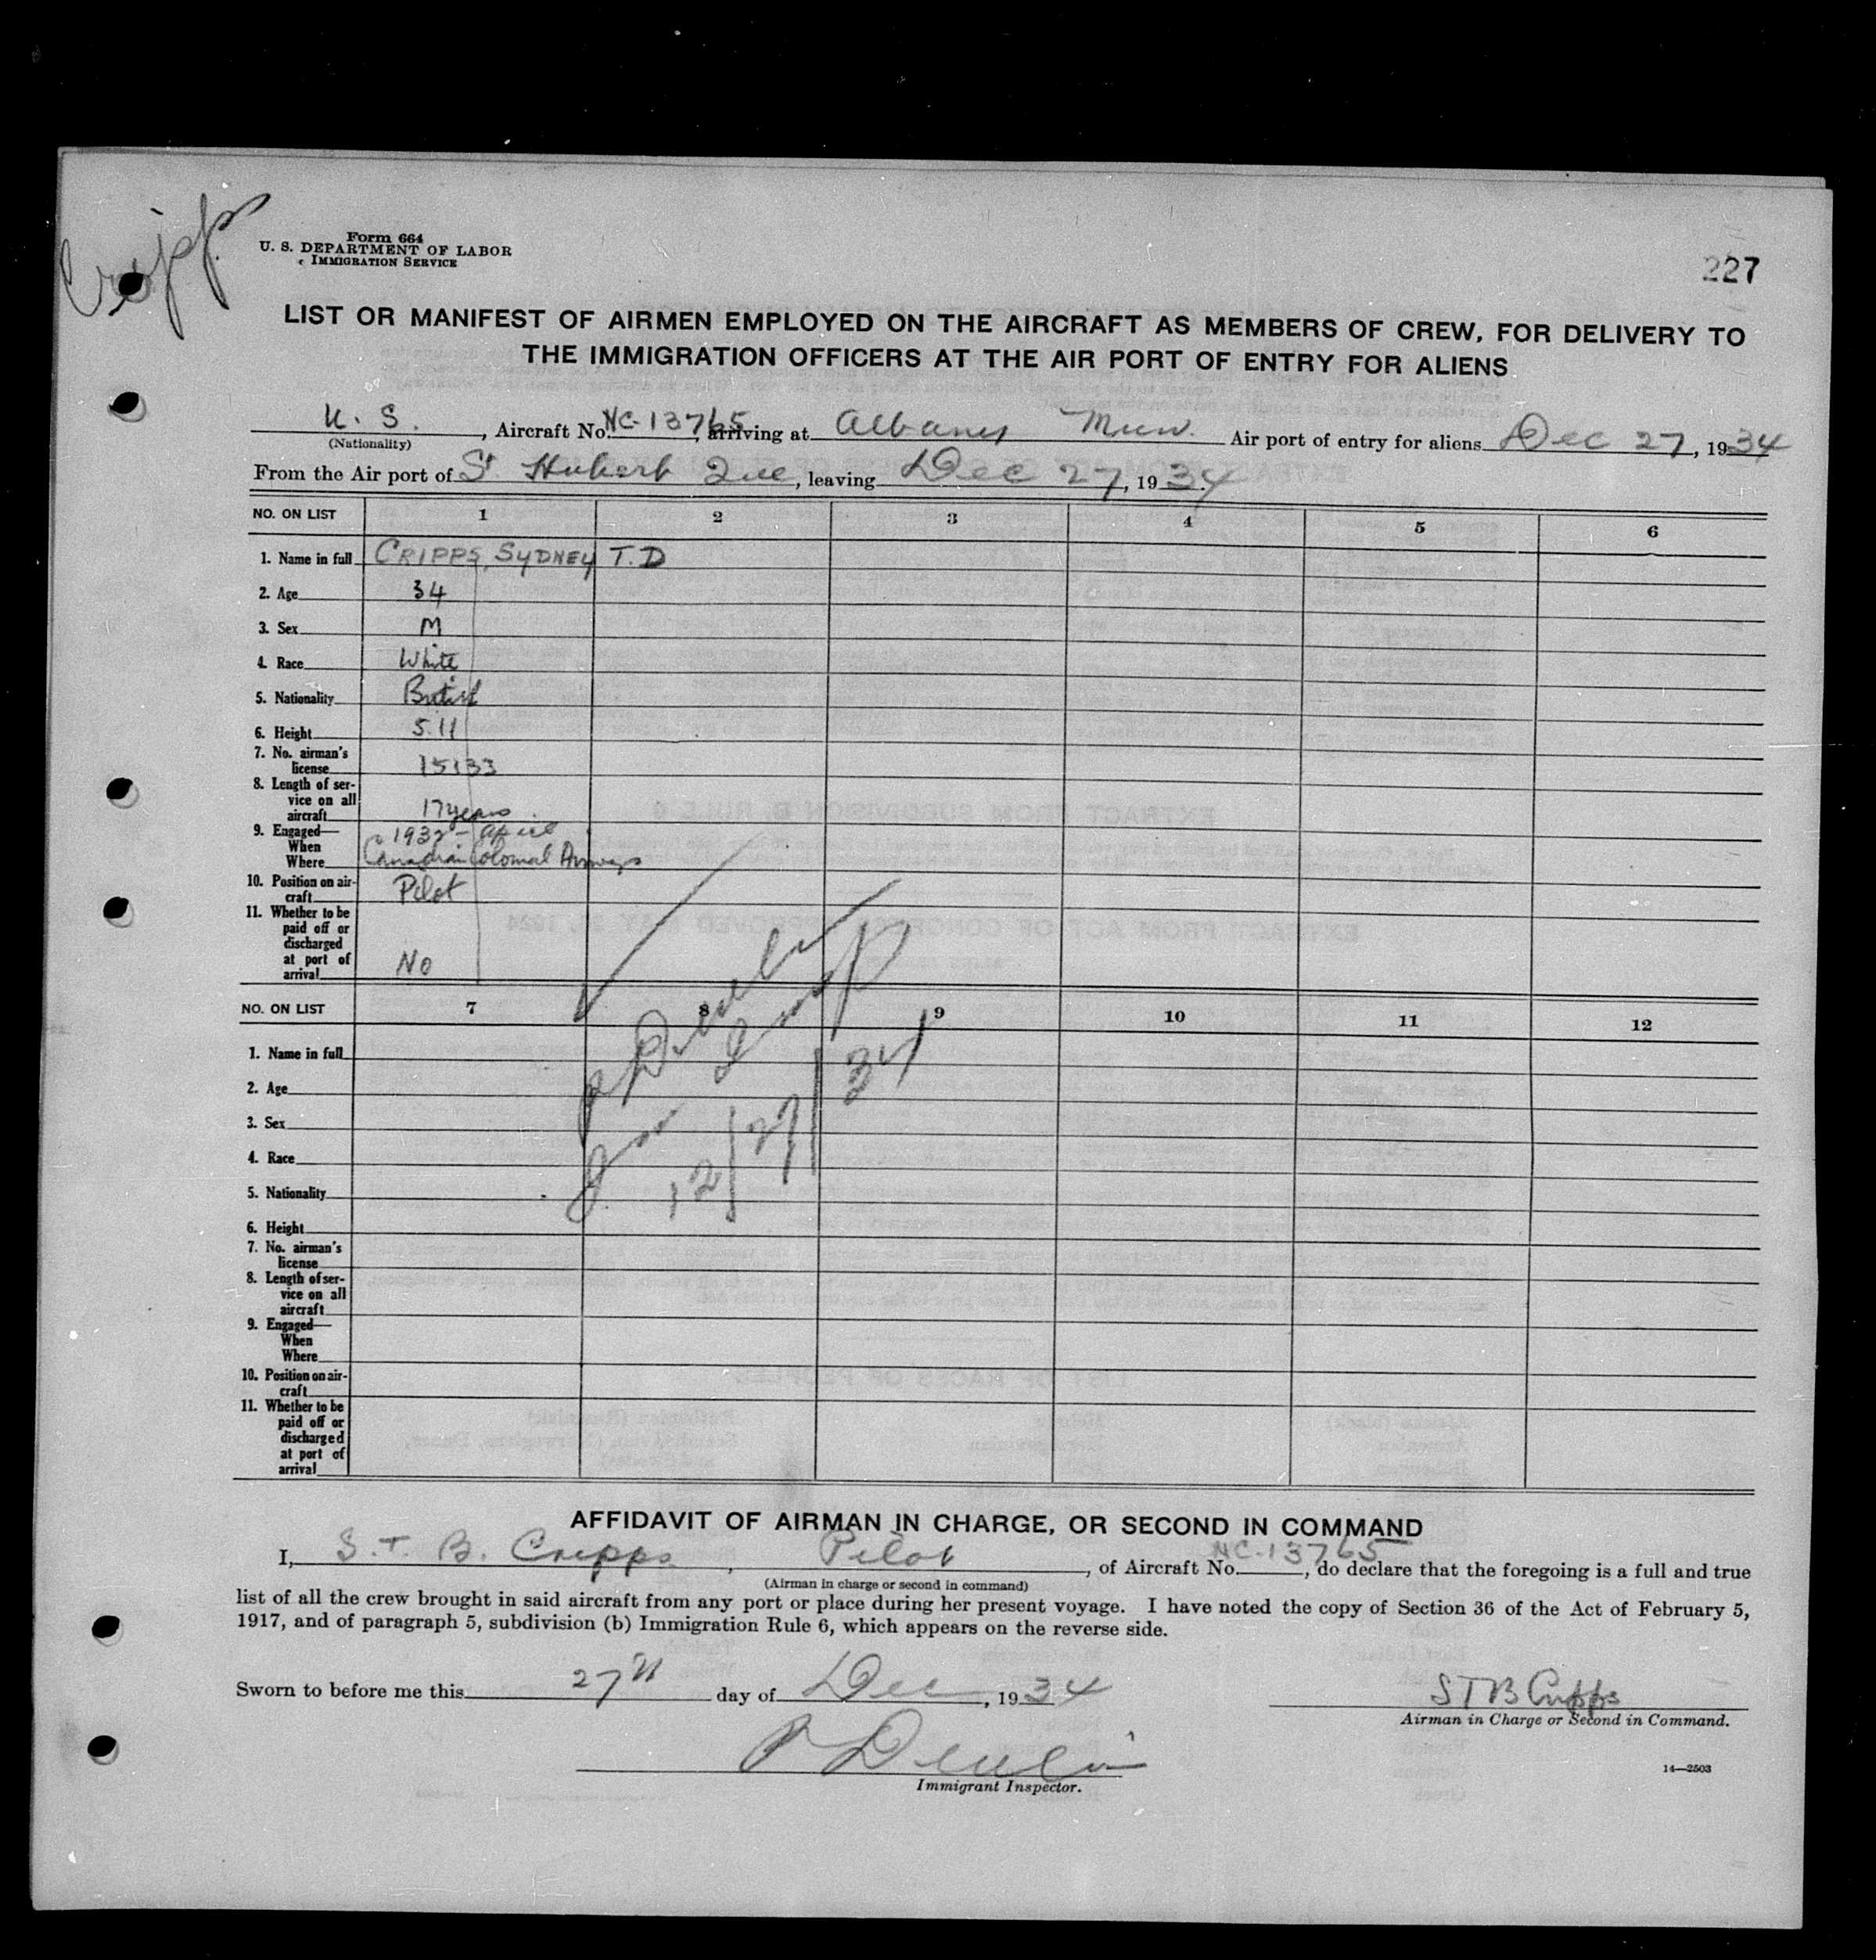 Cripps
Form 664
U. S. DEPARTMENT OF LABOR
IMMIGRATION SERVICE
227
LIST OR MANIFEST OF AIRMEN EMPLOYED ON THE AIRCRAFT AS MEMBERS OF CREW, FOR DELIVERY TO
THE IMMIGRATION OFFICERS AT THE AIR PORT OF ENTRY FOR ALIENS
U. S., Aircraft No. NC-13765, arriving at Albany Mun. Air port of entry for aliens Dec 27, 1934
(Nationality)
From the Air port of St Hubert Que, leaving Dec 27, 1934
NO. ON LIST 1 2 3 4 5 6
1. Name in full CRIPPS, SYDNEY T.D
2. Age 34
3. Sex M
4. Race White
5. Nationality British
6. Height 5.11
7. No. airman's
license 15133
8. Length of ser-
vice on all
aircraft 17 years
9. Engaged—
When 1932 - April
Where Canadian Colonial Airways
10. Position on air-
craft Pilot
11. Whether to be
paid off or
discharged
at port of
arrival No
NO. ON LIST 7 8 9 10 11 12
1. Name in full
2. Age
3. Sex
4. Race
5. Nationality
6. Height
7. No. airman's
license
8. Length of ser-
vice on all
aircraft
9. Engaged—
When
Where
10. Position on air-
craft
11. Whether to be
paid off or
discharged
at port of
arrival
12/27/34
AFFIDAVIT OF AIRMAN IN CHARGE, OR SECOND IN COMMAND
I, S. T. B. Cripps, Pilot, of Aircraft No. NC-13765, do declare that the foregoing is a full and true
(Airman in charge or second in command)
list of all the crew brought in said aircraft from any port or place during her present voyage. I have noted the copy of Section 36 of the Act of February 5,
1917, and of paragraph 5, subdivision (b) Immigration Rule 6, which appears on the reverse side.
Sworn to before me this 27th day of Dec, 1934
STB Cripps
Airman in Charge or Second in Command.
P Devlin
Immigrant Inspector.
14—2503